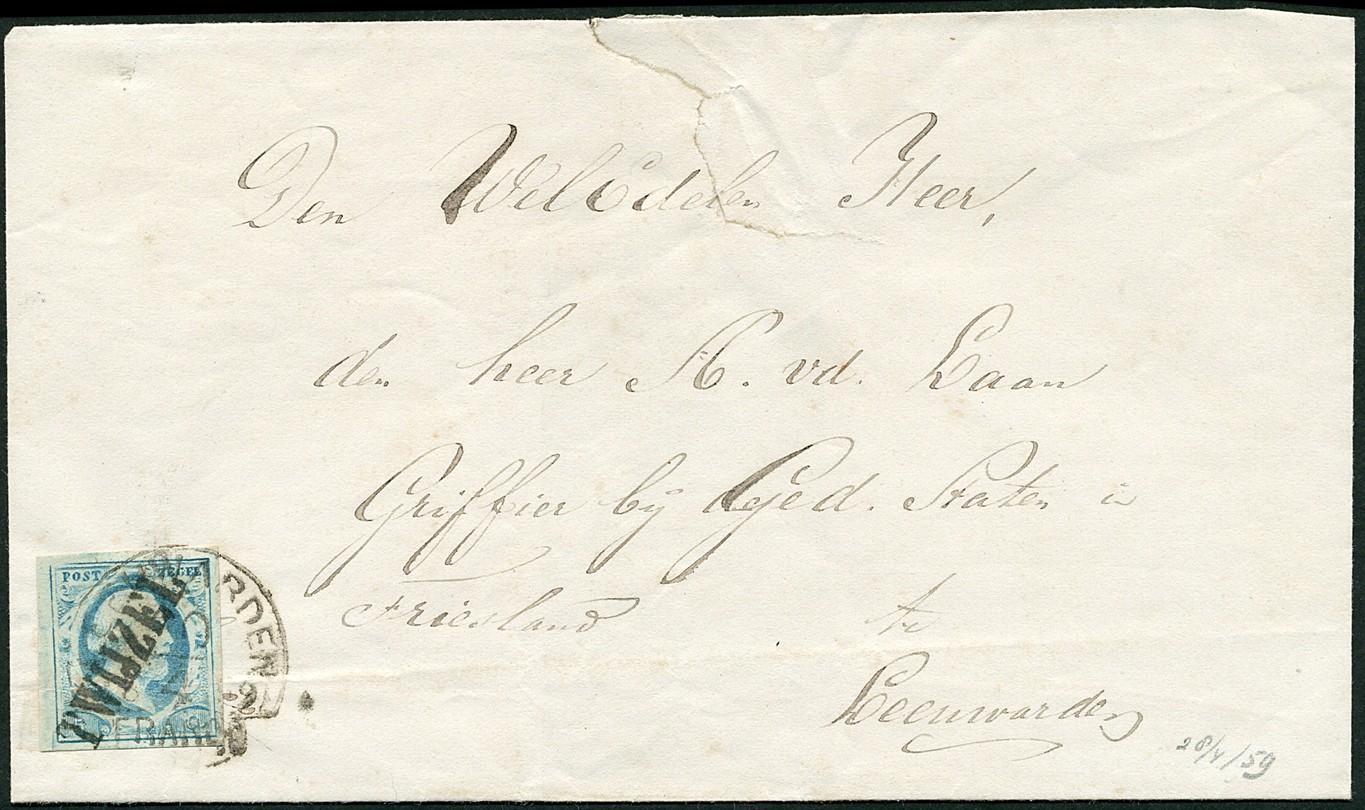 Den WelEdelen Heer,
den heer A. vd. Laan
Griffier bij Ged. Staten in
Friesland te
Leeuwarden
POST ZEGEL
TWIZEL
FRANCO
28/4/59